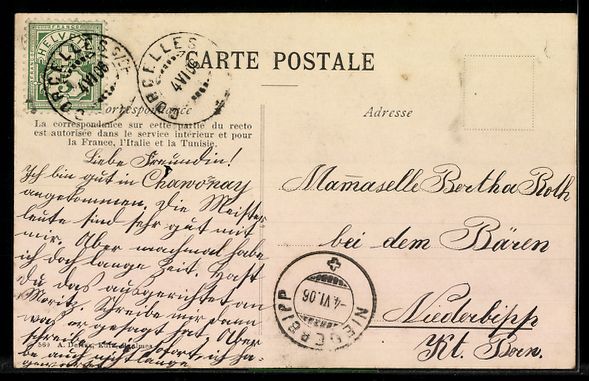 HELVETIA
CORCELLES S/CF
4 VI 06
CORCELLES
4 VI 06
CARTE POSTALE
Correspondance
La correspondance sur cette partie du recto
est autorisée dans le service intérieur et pour
la France, l'Italie et la Tunisie.
Adresse
Liebe Freundin!
Ich bin gut in Chawonay
angekommen. Die Meister
leute sind sehr gut mit
mir. Aber machmal habe
ich doch lange Zeit. Hast
du das ausgerichtet an
Moritz. Schreibe mir dann
was er gesagt hat. Aber
schreibe sofort ich ha-
be auch nicht lange
gewartet
Mam̄aselle Bertha Roth
bei dem Bären
Niederbipp
Kt. Bern.
NIEDERBIPP
4.VI.06